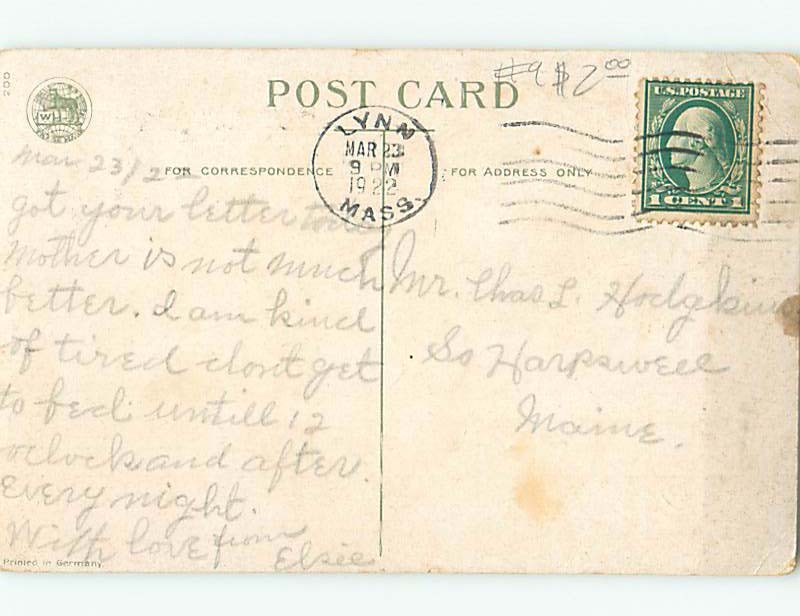 200
POST CARD
#9 $2.00
U.S. POSTAGE
1 CENT 1
LYNN
MAR 23
9 PM
1922
MASS.
W
FOR CORRESPONDENCE
FOR ADDRESS ONLY
Mar 23/22
got your letter
Mother is not much
better. I am kind
of tired dont get
to bed untill 12
oclock and after.
Every night.
With love from
Elsie
Mr. Chas L. Hodgkins
So Harpswell
Maine.
Printed in Germany